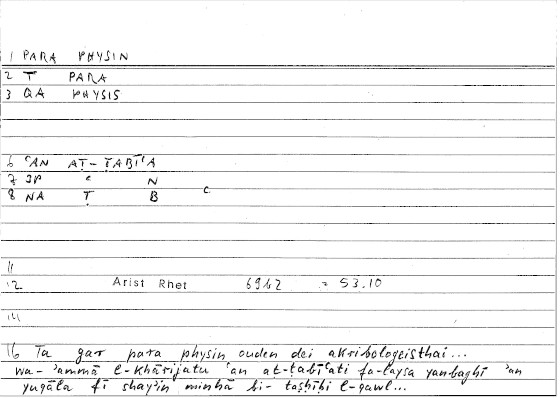 1 PARA PHYSIN
2 T PARA
3 QA PHYSIS
6 ʿAN AṬ-ṬABĪʿA
7 3P ʿ N
8 NA Ṭ B ʿ
11
12 Arist Rhet 69b2 = 53.10
14
16 Ta gar para physin ouden dei akribologeisthai...
wa-ʾammā l-khārijatu ʿan aṭ-ṭabīʿati fa-laysa yanbaghī ʾan
yuqāla fī shayʾin minhā bi- l-qawl...